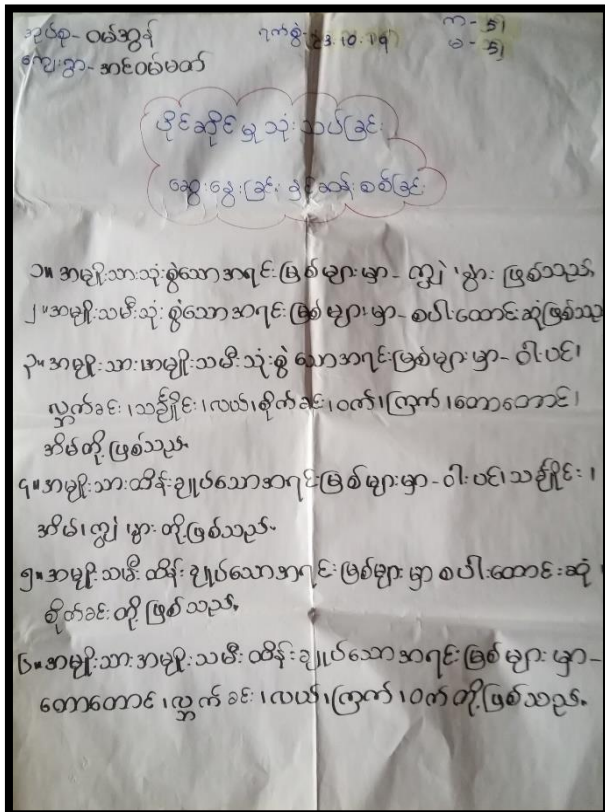 အုပ်စု - ဝမ်အွန်
ရက်စွဲ - 23.10.19
က - ၅၂
ကျေးရွာ - အင်ဝမ်မတ်
မ - ၅၂
ပိုင်ဆိုင်မှု သုံးသပ်ခြင်း
ဆွေးနွေးခြင်း နှင့်ဆန်းစစ်ခြင်း
၁။ အမျိုးသားသုံးစွဲသောအရင်းမြစ်များမှာ - ကျွဲ၊ နွား ဖြစ်သည်။
၂။ အမျိုးသမီးသုံးစွဲသောအရင်းမြစ်များမှာ - စပါးထောင်းဆုံဖြစ်သည်
၃။ အမျိုးသား၊ အမျိုးသမီးသုံးစွဲသောအရင်းမြစ်များမှာ - ဝါးပင်၊
လ္ဘက်ခင်း၊ သည်ှိုင်း၊ လယ်၊ စိုက်ခင်း၊ ဝက်၊ ကြက်၊ တောတောင်၊
အိမ်တို့ဖြစ်သည်။
၄။ အမျိုးသားထိန်းချုပ်သောအရင်းမြစ်များမှာ - ဝါးပင်၊ သည်ှိုင်း၊
အိမ်၊ ကျွဲ၊ နွား တို့ဖြစ်သည်။
၅။ အမျိုးသမီးထိန်းချုပ်သောအရင်းမြစ်များမှာ စပါးထောင်းဆုံ၊
စိုက်ခင်းတို့ဖြစ်သည်။
၆။ အမျိုးသား၊ အမျိုးသမီး ထိန်းချုပ်သောအရင်းမြစ်များမှာ -
တောတောင်၊ လ္ဘက်ခင်း၊ လယ်၊ ကြက်၊ ဝက်တို့ဖြစ်သည်။